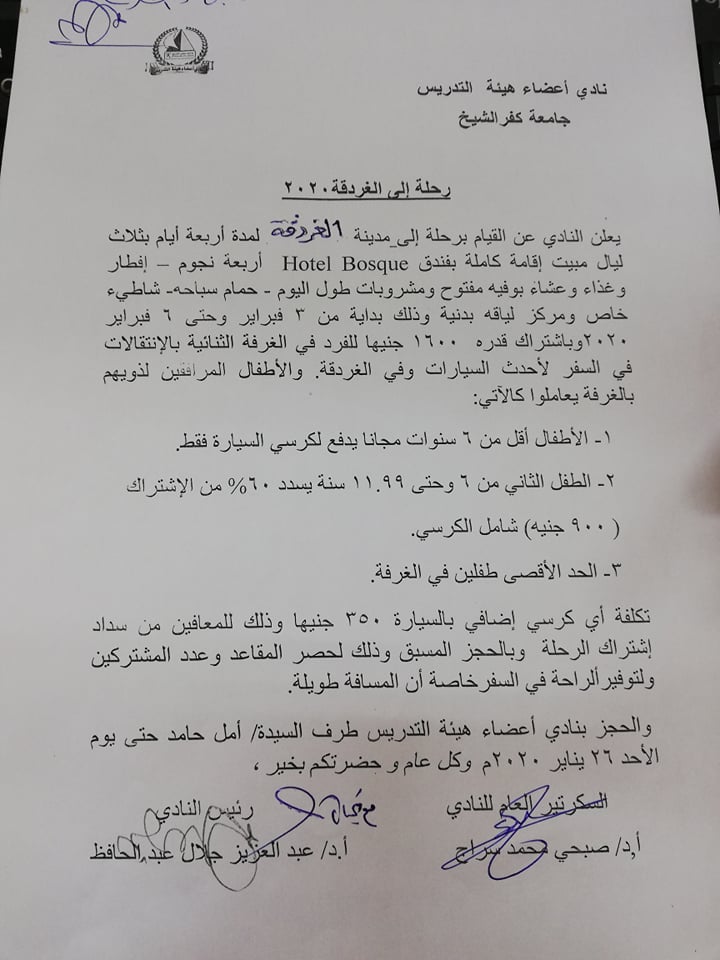 نادي أعضاء هيئة التدريس
جامعة كفرالشيخ
رحلة إلى الغردقة٢٠٢٠
يعلن النادي عن القيام برحلة إلى مدينة الغردقة لمدة أربعة أيام بثلاث
ليال مبيت إقامة كاملة بفندق Hotel Bosque أربعة نجوم – إفطار
وغذاء وعشاء بوفيه مفتوح ومشروبات طول اليوم - حمام سباحه- شاطيء
خاص ومركز لياقه بدنية وذلك بداية من ٣ فبراير وحتى ٦ فبراير
٢٠٢٠وباشتراك قدره ١٦٠٠ جنيها للفرد في الغرفة الثنائية بالإنتقالات
في السفر لأحدث السيارات وفي الغردقة. والأطفال المرافقين لذويهم
بالغرفة يعاملوا كالآتي:
١- الأطفال أقل من ٦ سنوات مجانا يدفع لكرسي السيارة فقط.
٢- الطفل الثاني من ٦ وحتى ١١.٩٩ سنة يسدد ٦٠% من الإشتراك
( ٩٠٠ جنيه) شامل الكرسي.
٣- الحد الأقصى طفلين في الغرفة.
تكلفة أي كرسي إضافي بالسيارة ٣٥٠ جنيها وذلك للمعافين من سداد
إشتراك الرحلة وبالحجز المسبق وذلك لحصر المقاعد وعدد المشتركين
ولتوفيرألراحة في السفرخاصة أن المسافة طويلة.
والحجز بنادي أعضاء هيئة التدريس طرف السيدة/ أمل حامد حتى يوم
الأحد ٢٦ يناير ٢٠٢٠م وكل عام و حضرتكم بخير ،
السكرتير العام للنادي رئيس النادي
أ,د/ صبحي محمد سراج أ.د/ عبد العزيز جلال عبد الحافظ